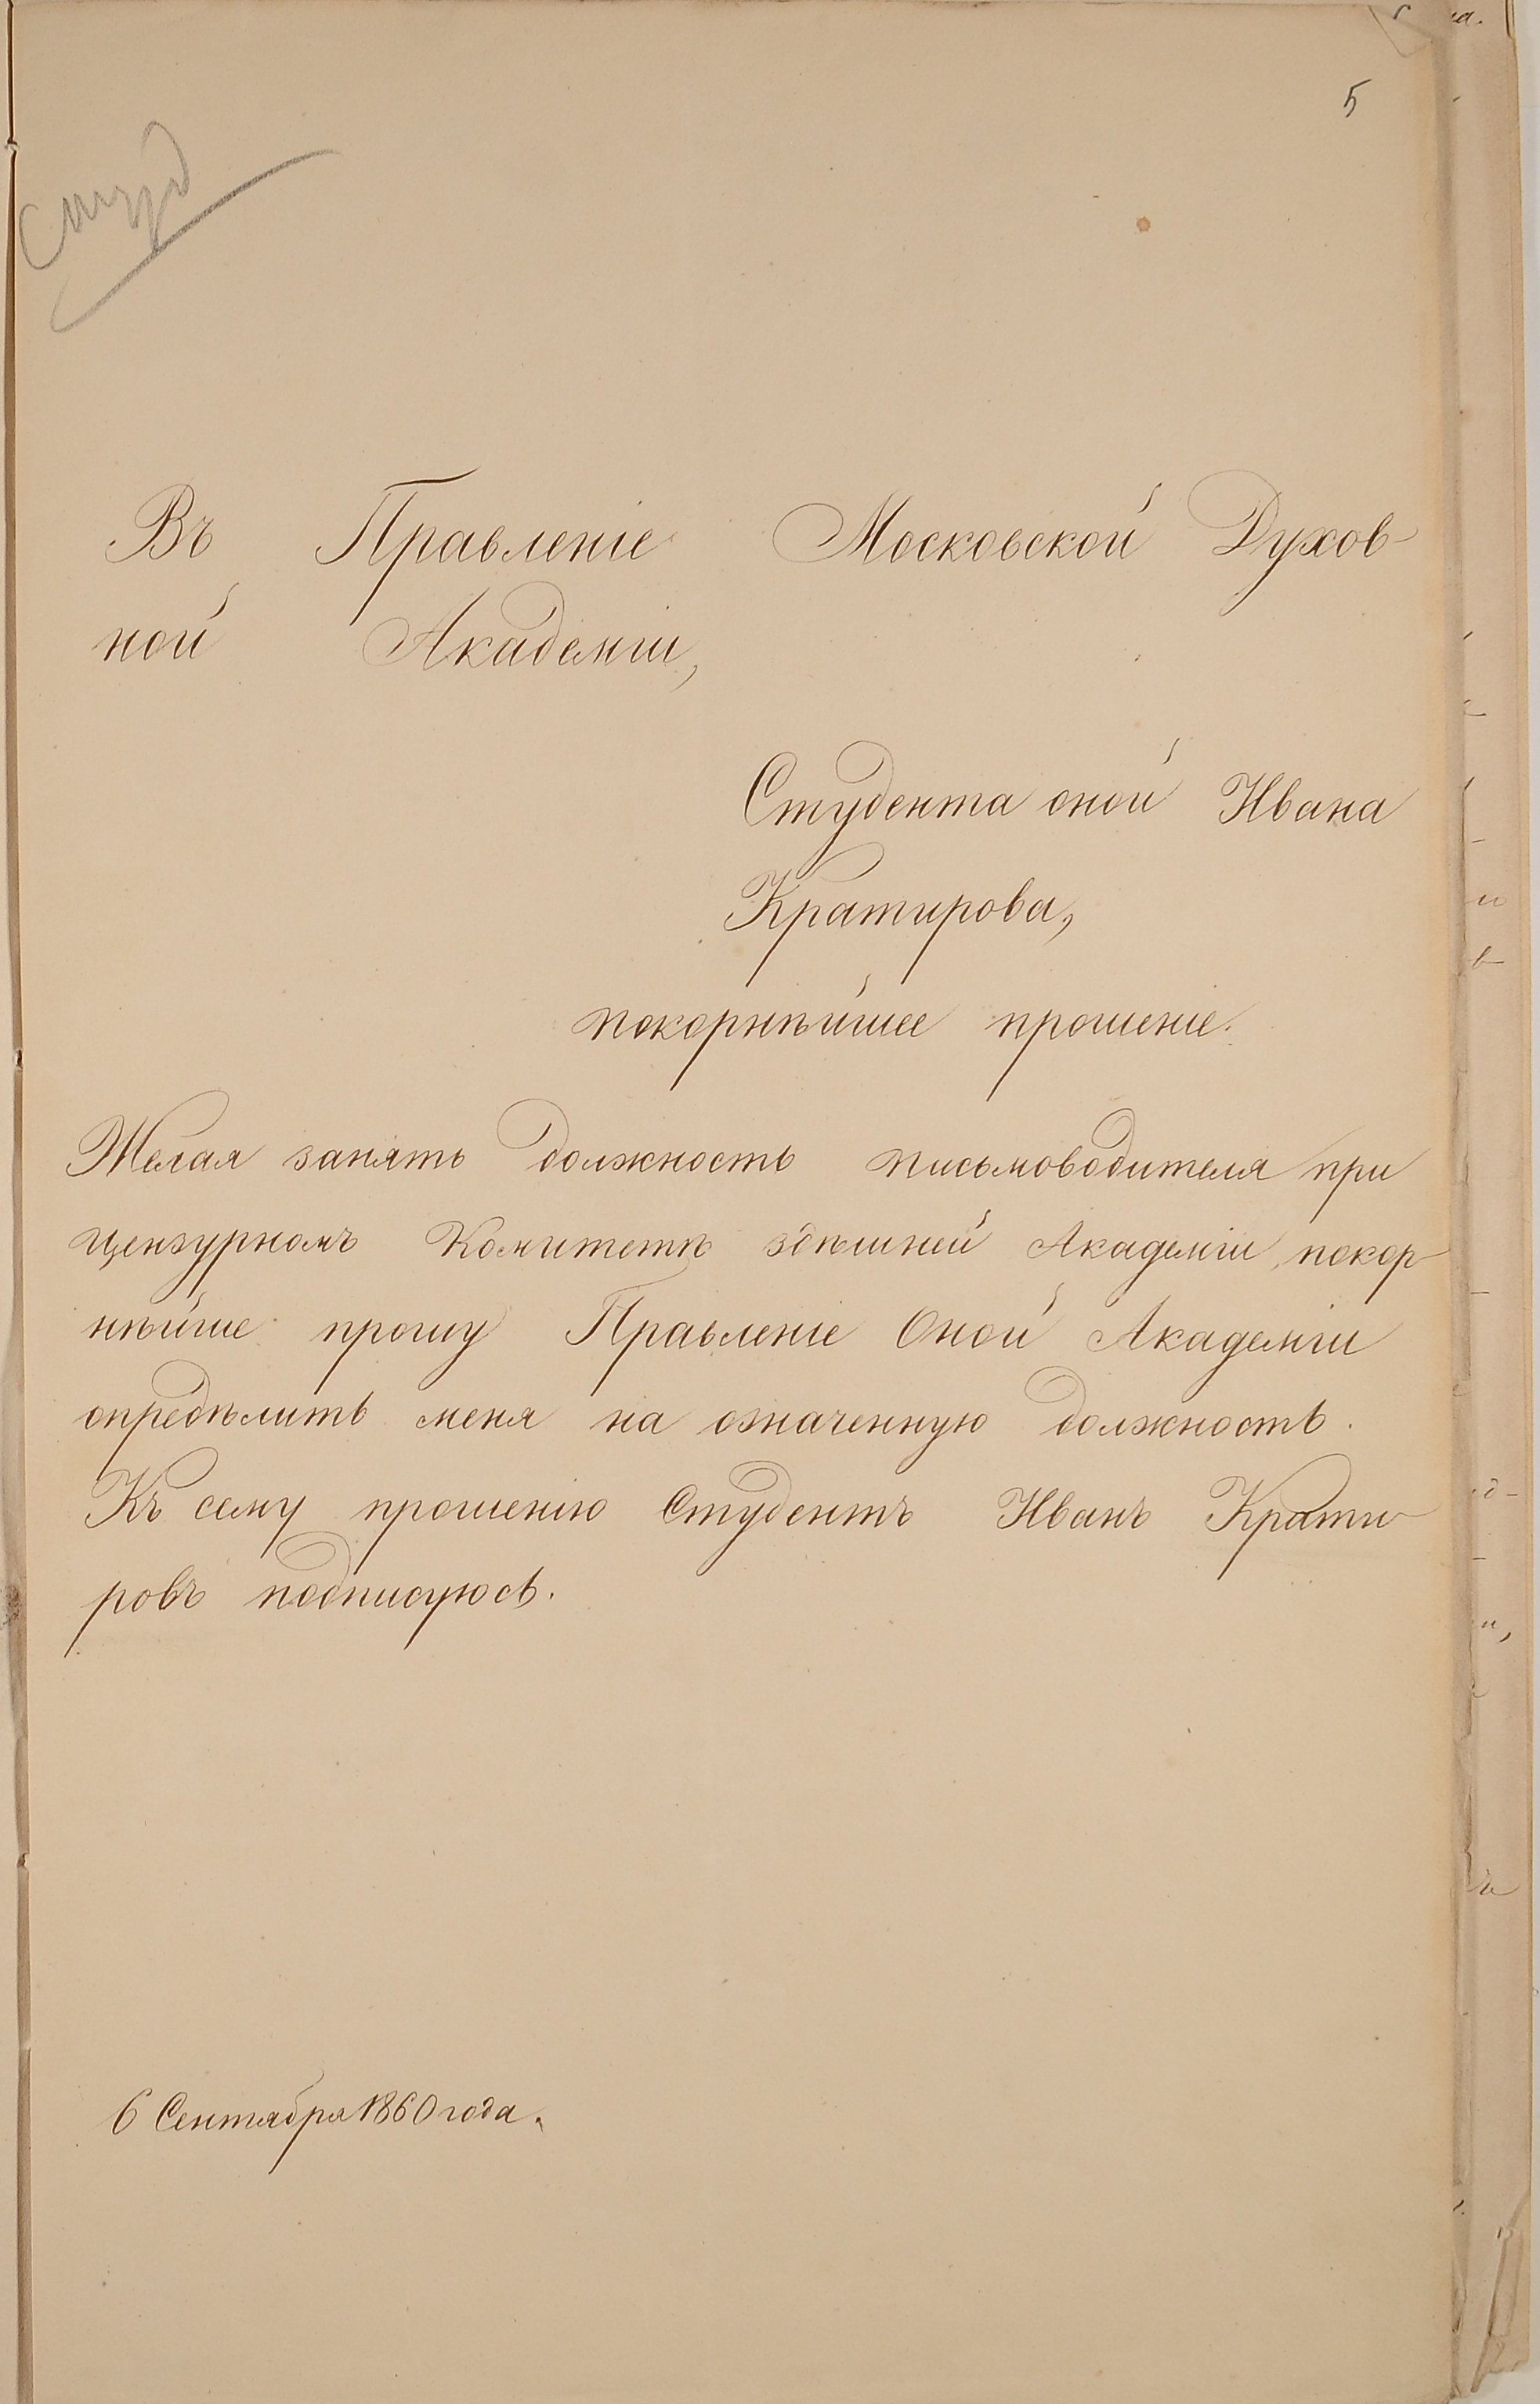 5
Студ
Въ Правленіе Московской Духов-
ной Академіи,
Студента оной Ивана
Кратирова,
покорнѣйшее прошеніе.
Желая занять должность письмоводителя при
цензурномъ Комитетѣ здѣшней Академіи, покор-
нѣйше прошу Правленіе Оной Академіи
опредѣлить меня на означенную должность.
Къ сему прошенію Студентъ Иванъ Крати-
ровъ подписуюсь.
6 Сентября 1860 года.